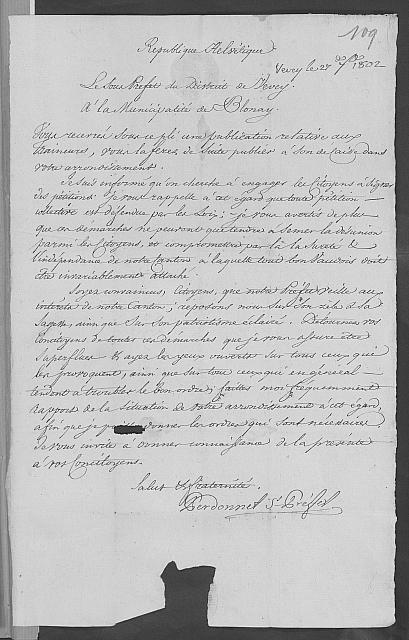 109
République Helvétique
Vevey le 27 7bre 1802
Le Sous Préfet du District de Vevey.
à la Municipalité de Blonay.
Vous recevrés sous ce pli une publication relative aux
vous la ferez de suite publier à son de Caisse dans
votre arrondissement.
Je suis informé qu'on cherche à engager les Citoyens à signer
des pétitions; je vous rappelle à cet égard que toute pétition
collective est défendue par les Loix; je vous avertis de plus
que ces démarches ne peuvent que tendre à semer la désunion
parmi les Citoyens, et compromettre par là la Sureté &
l'indépendance de notre Canton à laquelle tout bon Vaudois doit
être invariablement attaché.
Soyez convaincus, Citoyens, que notre Préfet veille aux
intérêts de notre Canton; reposons nous sur son zèle et sa
Sagesse, ainsi que sur son patriotisme éclairé. Détournez vos
Concitoyens de toutes ces démarches que je vous assure être
superflues & ayez les yeux ouverts sur tous ceux qui
les provoquent, ainsi que sur tous ceux qui en général
tendent à troubler le bon ordre; faites moi fréquemment
rapport de la situation de votre arrondissement à cet égard,
afin que je puisse donner les ordres que sont nécessaires
Je vous invite à donner connaissance de la présente
à vos Concitoyens.
Salut & fraternité.
Perdonnet S. Préfet